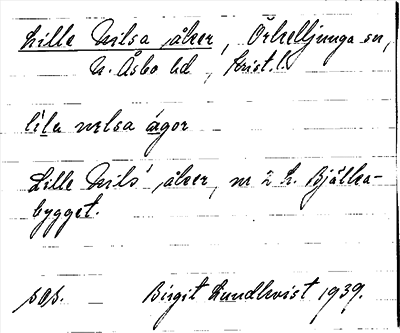 Lille Nilsa åker, Örkelljunga sn,
N. Åsbo hd, Krist. l.
lila nelsa ågor
Lille Nils' åker, nr 2 h. Bjälka-
bygget.
sds.   Birgit Lundkvist 1939.